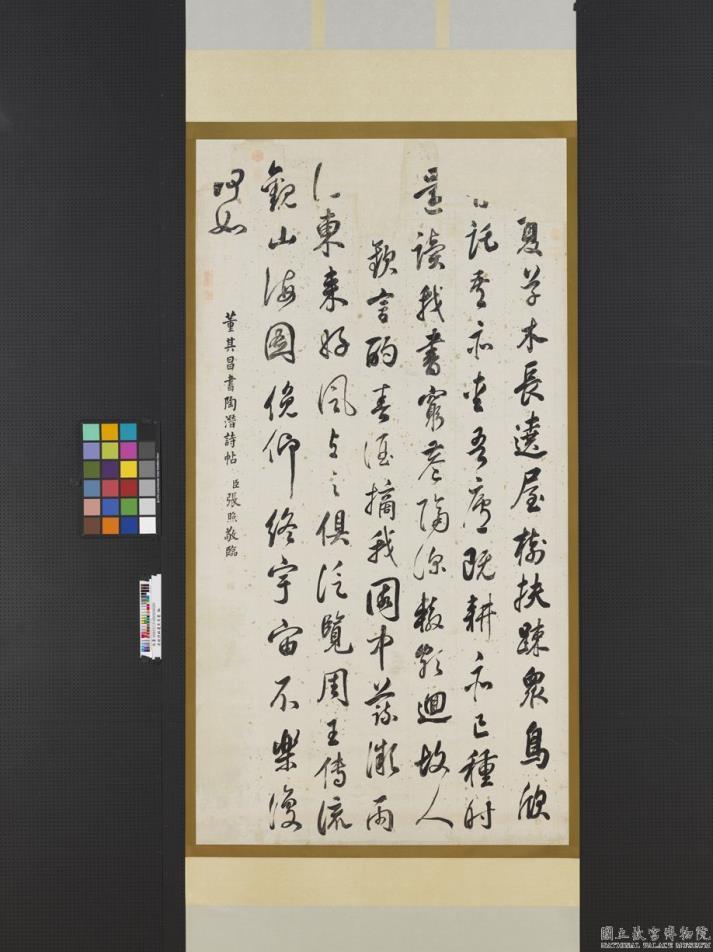 夏草木長遶屋樹扶踈衆鳥欣
託吾亦愛吾廬既耕亦已種時
還讀我書窮巷隔深轍頗迴故人
歡言酌春酒摘我園中蔬微雨
東来好風与之俱泛覽周王傳流
觀山海圖俛仰終宇宙不樂復
何如
董其昌書陶潛詩帖 臣張照敬臨
國立故宮博物院
NATIONAL PALACE MUSEUM